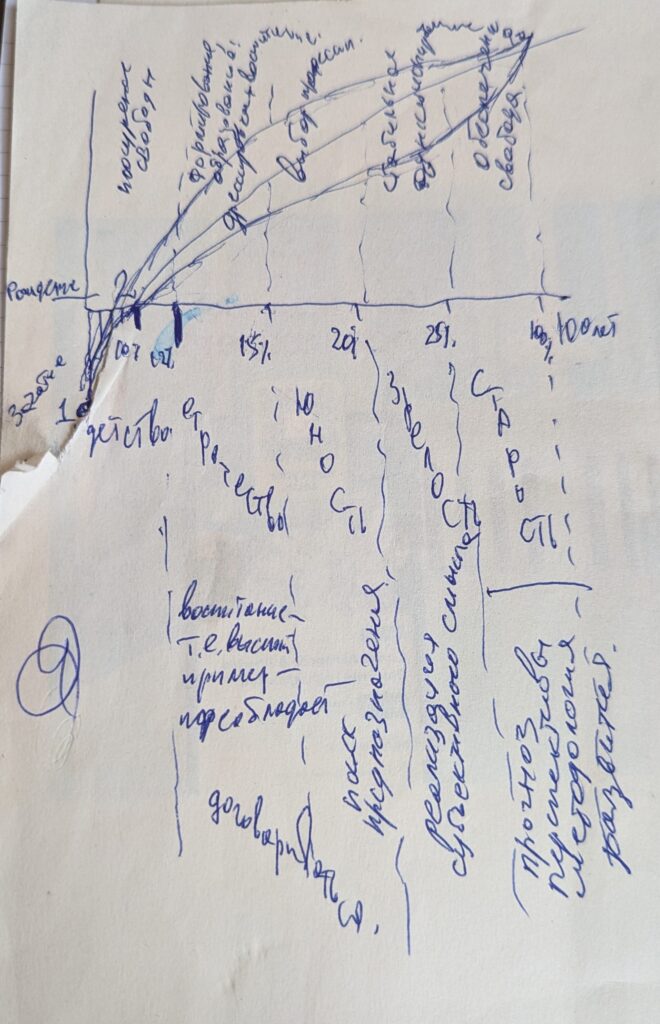 поощрение
свободы
формирование
образование!
дрессировка+воспитание.
выбор професси.
стабильное
обеспечение
свобода.
Рождение
Зачатие
1
2
10%
12%
15%
20%
25%
100%
100 лет
детство
отрочество
юность
зрелость
старость
воспитание-
т.е. высший
пример-
преобладает
договариваться.
поиск
предназначения
реализация
субъективного смысла
прогноз
перспективы
методология
развития.